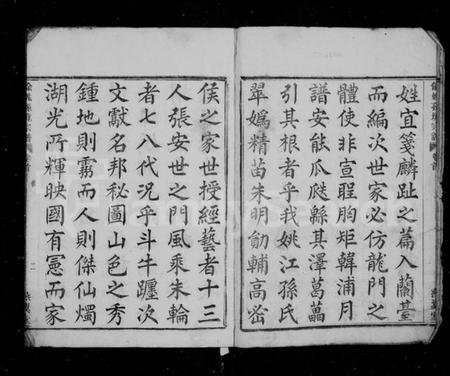 姓宜箋麟趾之篇入蘭臺
而編次世家必仿龍門之
體使非宣聖胸矩韓浦月
譜安能瓜瓞縣其澤葛藟
引其根者乎我姚江孫氏
翠媯精苗朱明勛輔高密
侯之家世授經藝者十三
人張安世之門風乘朱輪
者七八代況乎斗牛躔次
文獻名邦秘圖山色之秀
鍾地則靈而人則傑仙燭
湖光所輝映國有憲而家